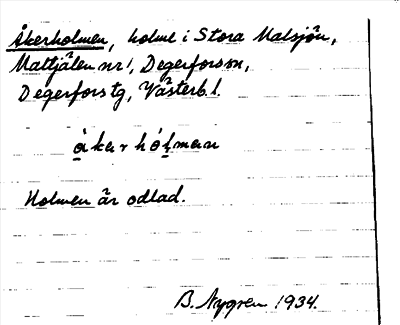 Åkerholmen, holme i Stora Malsjön,
Mattjälen nr 1, Degerforssn,
Degerfors tg, Västerb. l.
åkarhólman
Holmen är odlad.
B. Nygren 1934.